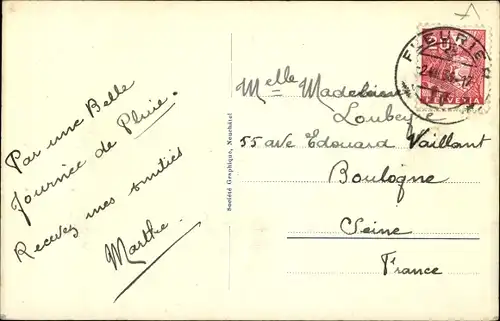 Par une Belle
Journée de Pluie.
Recevez mes amitiés
Marthe.
Société Graphique, Neuchâtel
FLEURIER
20
HELVETIA
Melle Madeleine
Loubeyre
55 ave Edouard Vaillant
Boulogne
Seine
France